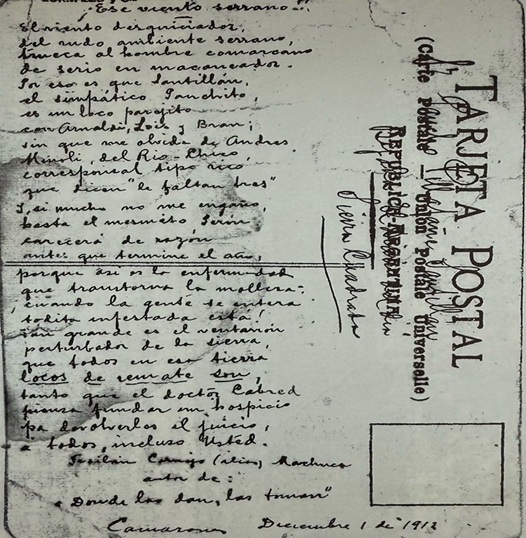 "Ese viento serrano"..
El viento desquiciador,
del rudo ambiente serrano,
trueca al hombre comarcano
de serio en macaneador.
Por eso es que Santillán,
el simpático Panchito,
es un loco parejito
con Arnaldi, Lois y Bran;
sin que me olvide de Andres
Minoli, del Rio-Chico,
corresponsal tipo rico,
que dicen "le faltan tres"
Y, si mucho no me engaño,
hasta el mesmito
carecerá de razón
antes que termine el año,
porque asi es la enfermedad
que transtorna la mollera;
y, cuando la gente se entera
todita infestada está!
Tan grande es el ventarrón
perturbador de la sierra,
que todos en esa tierra
locos de remate son,
tanto que el doctor Cabred
piensa fundar un hospicio
pa devolverles el juicio,
a todos, incluso Usted.
(alias) Machuca
autor de:
"Donde las dan, las toman"
Camarones Diciembre 1 de 1912
TARJETA POSTAL
(Carte Postale — Union Postale Universelle)
REPÚBLICA ARGENTINA
Sierra Cuadrada